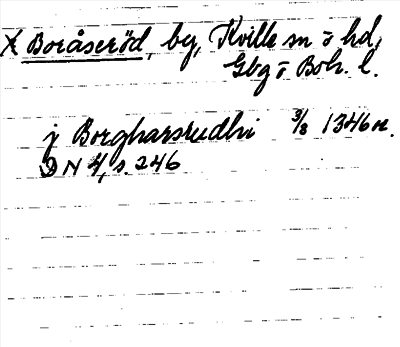 X Boråseröd, by, Kville sn o hd,
Gbg o Boh. l.
j Borgharsrudhi 3/8 1346 or.
DN 4, s. 246